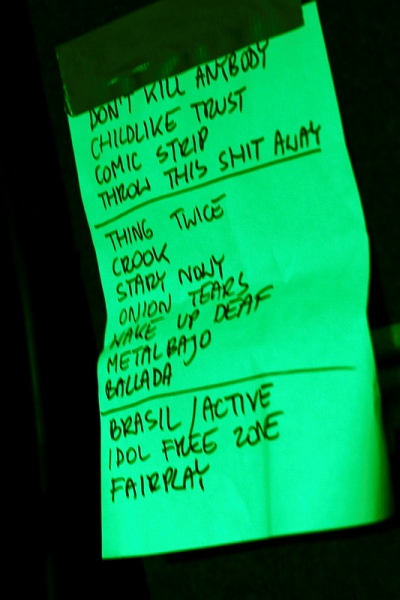 DON'T KILL ANYBODY
CHILDLIKE TRUST
COMIC STRIP
THROW THIS SHIT AWAY
THING TWICE
CROOK
STARY NOWY
ONION TEARS
WAKE UP DEAF
METAL BAJO
BALLADA
BRASIL / ACTIVE
IDOL FREE ZONE
FAIRPLAY